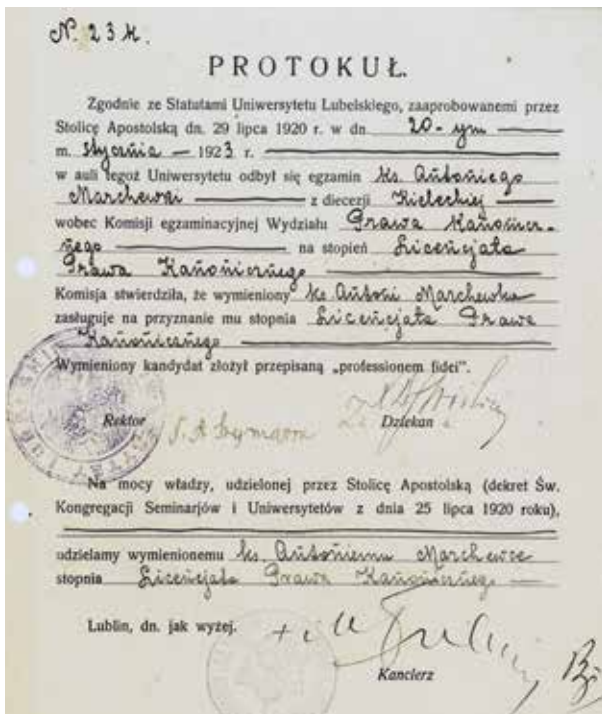 N. 23 K.
PROTOKUŁ.
Zgodnie ze Statutami Uniwersytetu Lubelskiego, zaaprobowanemi przez
Stolicę Apostolską dn. 29 lipca 1920 r. w dn. 20-ym
m. stycznia — 1923 r.
w auli tegoż Uniwersytetu odbył się egzamin ks. Antoniego
Marchewki z diecezji Kieleckiej
wobec Komisji egzaminacyjnej Wydziału Prawa Kanonicz-
nego na stopień Licencjata
Prawa Kanonicznego
Komisja stwierdziła, że wymieniony ks Antoni Marchewka
zasługuje na przyznanie mu stopnia Licencjata Prawa
Kanonicznego
Wymieniony kandydat złożył przepisaną „professionem fidei".
Rektor Dziekan
Na mocy władzy, udzielonej przez Stolicę Apostolską (dekret Św.
Kongregacji Seminarjów i Uniwersytetów z dnia 25 lipca 1920 roku),
udzielamy wymienionemu ks. Antoniemu Marchewce
stopnia Licencjata Prawa Kanonicznego
Lublin, dn. jak wyżej.
Kanclerz